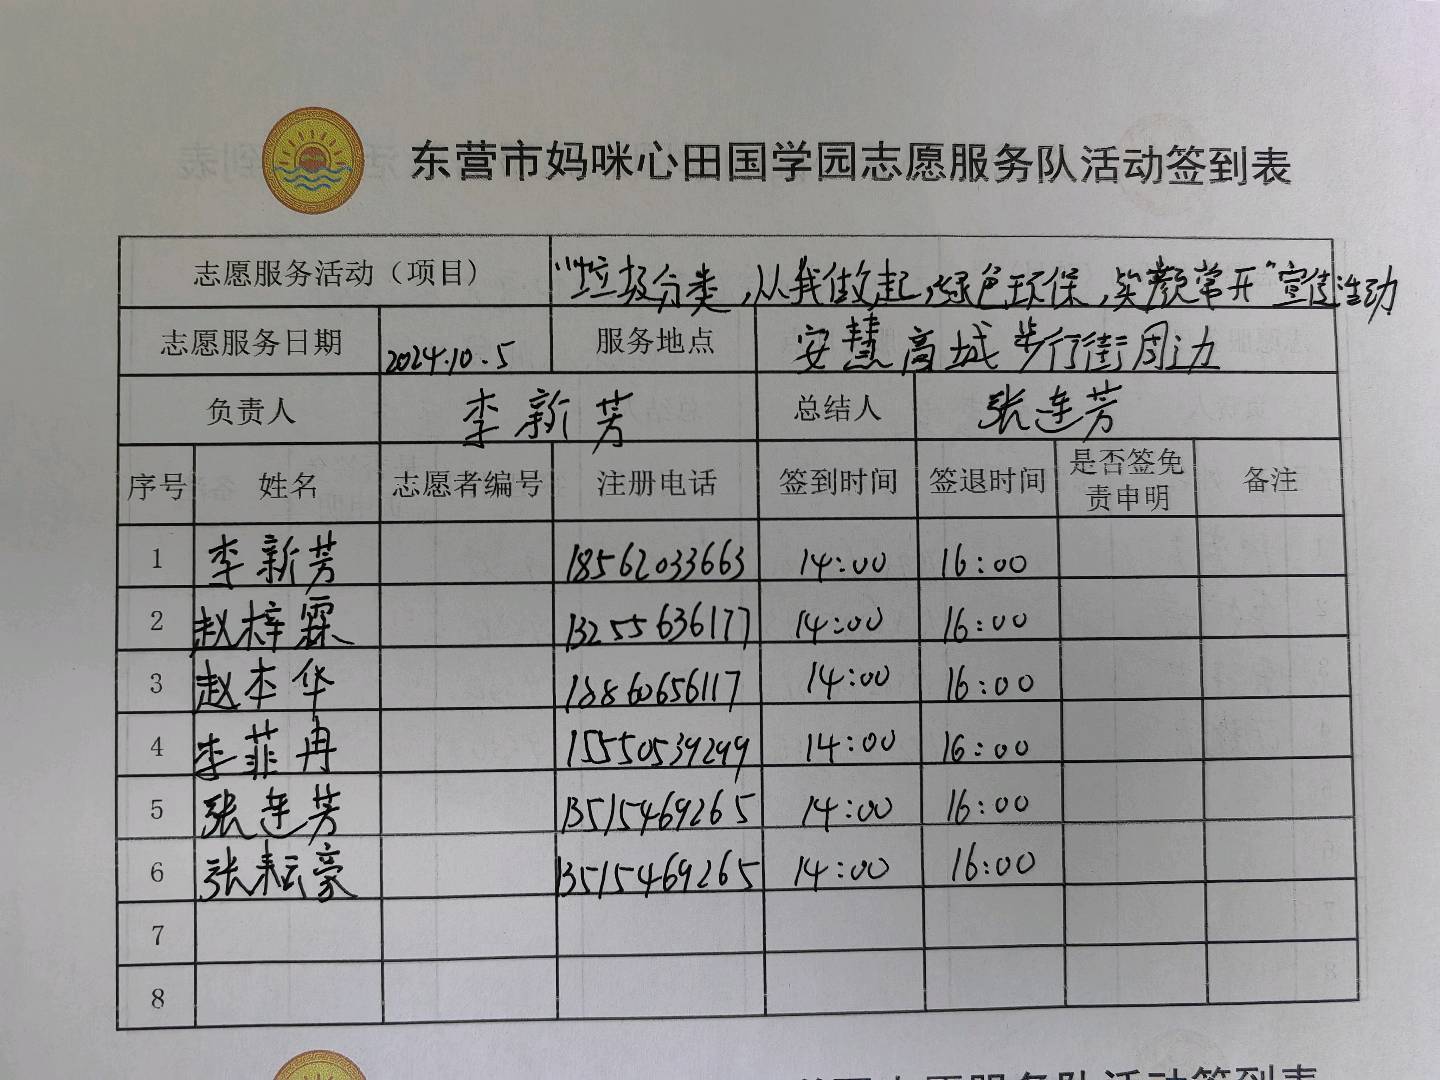 东营市妈咪心田国学园志愿服务队活动签到表
志愿服务活动（项目） “垃圾分类，从我做起，绿色环保，笑颜常开”宣传活动
志愿服务日期 2024.10.5 服务地点 安慧商城步行街周边
负责人 李新芳 总结人 张连芳
序号 姓名 志愿者编号 注册电话 签到时间 签退时间 是否签免责申明 备注
1 李新芳 18562033663 14:00 16:00
2 赵梓霖 13255636177 14:00 16:00
3 赵本华 18860656117 14:00 16:00
4 李菲冉 15550539299 14:00 16:00
5 张连芳 13515469265 14:00 16:00
6 张耘豪 13515469265 14:00 16:00
7
8